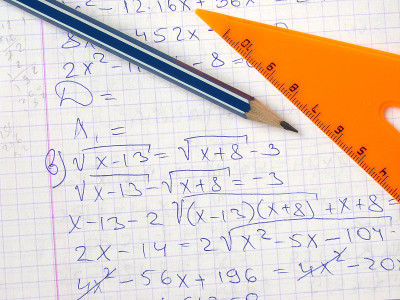 x² - 12.16x + 56x - 2
8x - 452x
2x² - 11 - 8 =
D =
X₁ =
в) √(x-13) = √(x+8) - 3
√(x-13) - √(x+8) = -3
x-13-2√((x-13)(x+8)) + x+8 =
2x - 14 = 2√(x²-5x-104
4x² - 56x + 196 = 4x² - 20
10 9 8 7 6 5 4